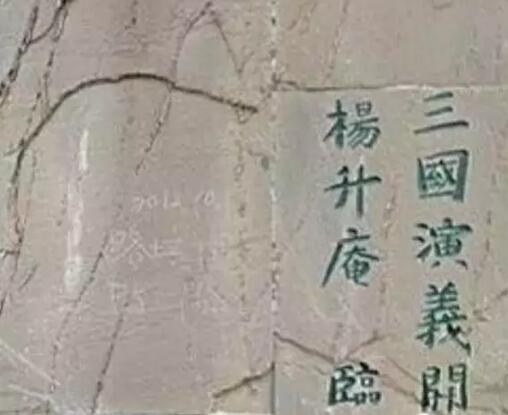 三國演義開
楊升庵 臨
2012.10